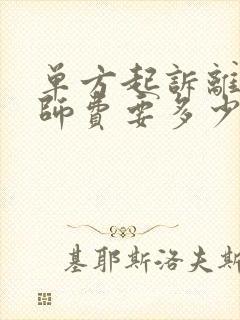 單方起訴離
師費要多少
基耶斯洛夫斯